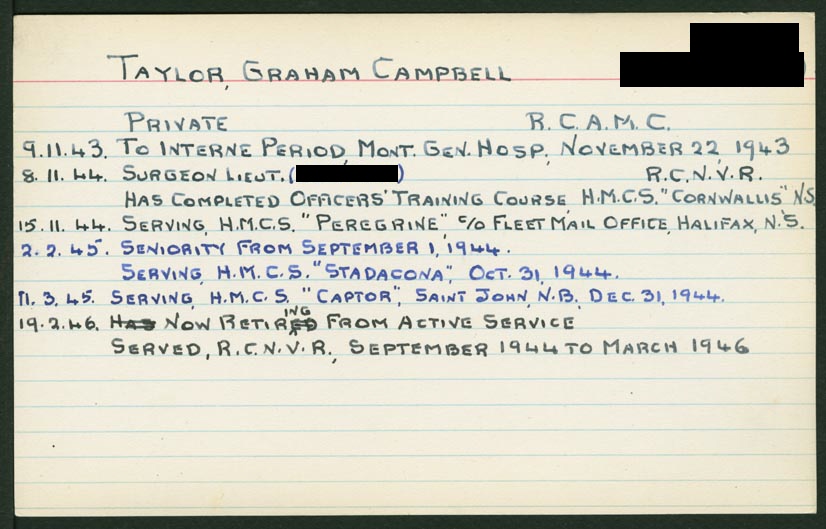 TAYLOR, GRAHAM CAMPBELL
PRIVATE R.C.A.M.C.
9.11.43. TO INTERNE PERIOD, MONT. GEN. HOSP., NOVEMBER 22, 1943
8.11.44. SURGEON LIEUT. ( ) R.C.N.V.R.
HAS COMPLETED OFFICERS' TRAINING COURSE H.M.C.S. "CORNWALLIS" N.S.
15.11.44. SERVING, H.M.C.S. "PEREGRINE", C/O FLEET MAIL OFFICE, HALIFAX, N.S.
2.2.45. SENIORITY FROM SEPTEMBER 1, 1944.
SERVING, H.M.C.S. "STADACONA", OCT. 31, 1944.
11.3.45. SERVING, H.M.C.S. "CAPTOR", SAINT JOHN, N.B., DEC. 31, 1944.
19.2.46. HAS NOW RETIREDING FROM ACTIVE SERVICE
SERVED, R.C.N.V.R., SEPTEMBER 1944 TO MARCH 1946